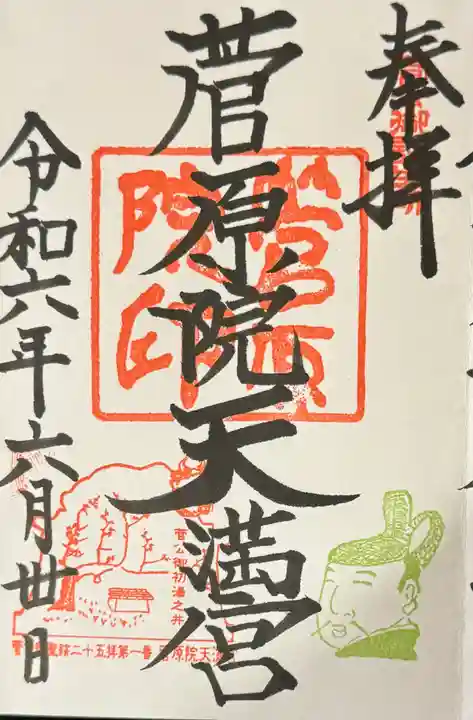 奉拝
菅原院天満宮
令和六年六月卅日
菅原院印
菅公御初湯之井
二十五拝第一番 菅原院天満